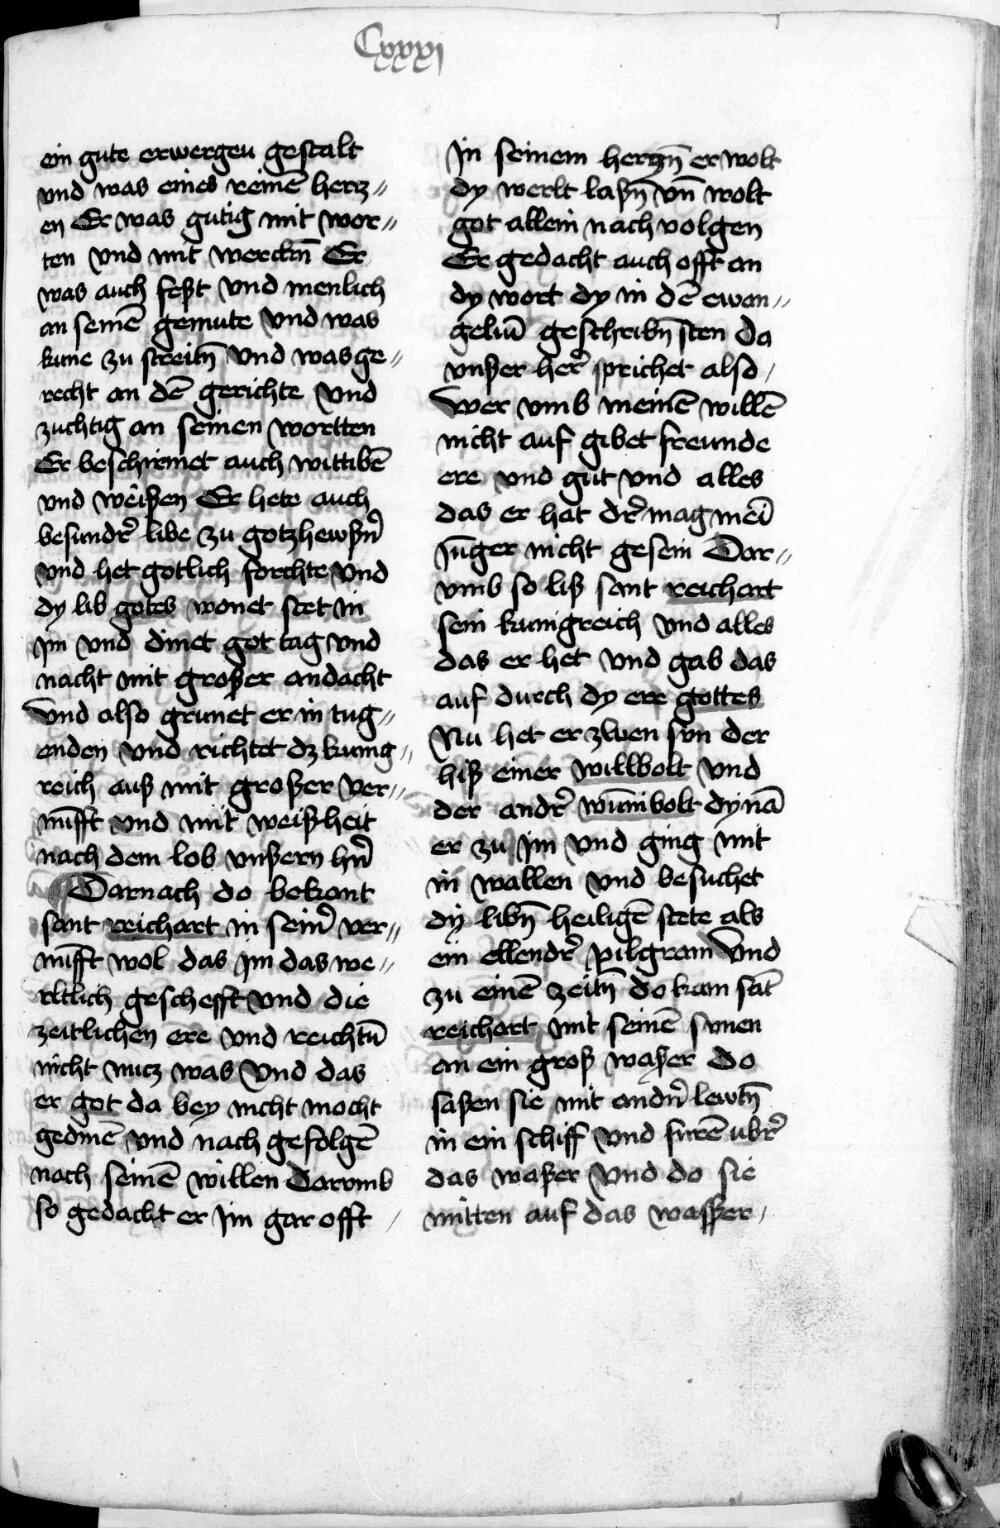 Cxxxi
ein gute erwergeu gestalt
vnd was eines reinē hertz„
en Er was gutig mit wor„
ten vnd mit werckn̄ Er
was auch feßt vnd menlich
an seinē gemute vnd was
kune zu streitn̄ vnd was ge„
recht an dē gerichte vnd
zuchtig an seinen wortten
Er beschirmet auch wittibē
vnd weißen Er hete auch
besundr̄ libe zu gotzhewßn̄
vnd het gotlich forchte vnd
dy lib gotes wonet stet in
jm vnd dinet got tag vnd
nacht mit großer andacht
Vnd also grunet er in tug„
enden vnd richtet dz kunig„
reich auß mit großer ver„
nūfft vnd mit weißheit
nach dem lob vnßern hn̄
Darnach do bekant
sant reichart in sein̄ ver„
nūfft wol das jm das we„
rltlich geschefft vnd die
zeitlichen ere vnd reichtū
nicht nutz was Vnd das
er got da bey nicht mocht
gedinē vnd nach gefolgē
nach seinē willen Darvmb
so gedacht er jm gar offt /
jn seinem hertzn̄ er wolt
dy werlt laßn̄ vn̄ wolt
got allein nach volgen
Er gedacht auch offt an
dy wort dy in dē ewan„
geliū geschribn̄ sten da
vnßer her̄ sprichet also /
Wer vmb meinē willē
nicht auf gibet freunde
ere vnd gut vnd alles
das er hat dr̄ mag mei͞
jūger nicht gesein Dar„
vmb so liß sant reichart
sein kunigreich vnd alles
das er het vnd gab das
auf durch dy ere gottes
Nu het er zwen sun der
hiß einer willbolt vnd
der andr̄ wūnibolt dy nā
er zu jm vnd ging mit
in wallen vnd besuchet
dy libn̄ heiligē stete als
ein ellendr̄ pilgram Vnd
zu einē zeitn̄ do kam sāt
reichart mit seinē sunen
an ein groß waßer Do
saßen sie mit andn̄ lewtn̄
in ein schiff vnd furē ubr̄
das waßer vnd do sie
mitten auf das wasser /